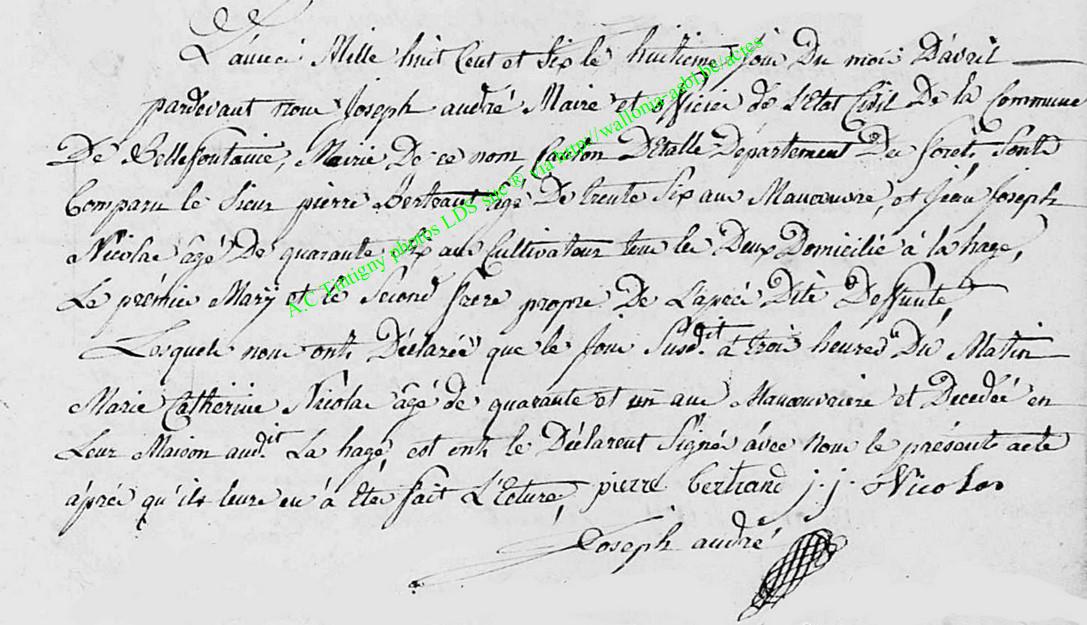 L'année Mille huit Cent et Six le huitieme Jour Du mois D'avril
pardevant nous Joseph andré Maire et officié de L'Etat Civil De la Commune
De Bellefontaine, Mairie De ce nom Canton D'Etalle Département Des forêts Sont
Comparu le Sieur pierre Bertrand âgé De trente Six ans Manœuvre, et Jean Joseph
Nicolas âgé De quarante ans Cultivateur tous les Deux Domicilié à la hage,
Le prémié Mary et le Second frere propre De L'aprés Dite Deffunte,
Lesquels nous onts Déclarée que le Jour Susdit à trois heures Du Matin
Marie Catherine Nicolas âgé de quarante et un ans Manœuvriere et Decedée en
Leur Maison audit La hage et onts le Déclarent Signés avec nous le présent acte
âprés qu'ils leurs en à Eté fait L'Ecture, pierre bertrand j. j. Nicolas
Joseph andré
A.C Tintigny photos LDS sur ® via http://wallonia-asbl.be/actes